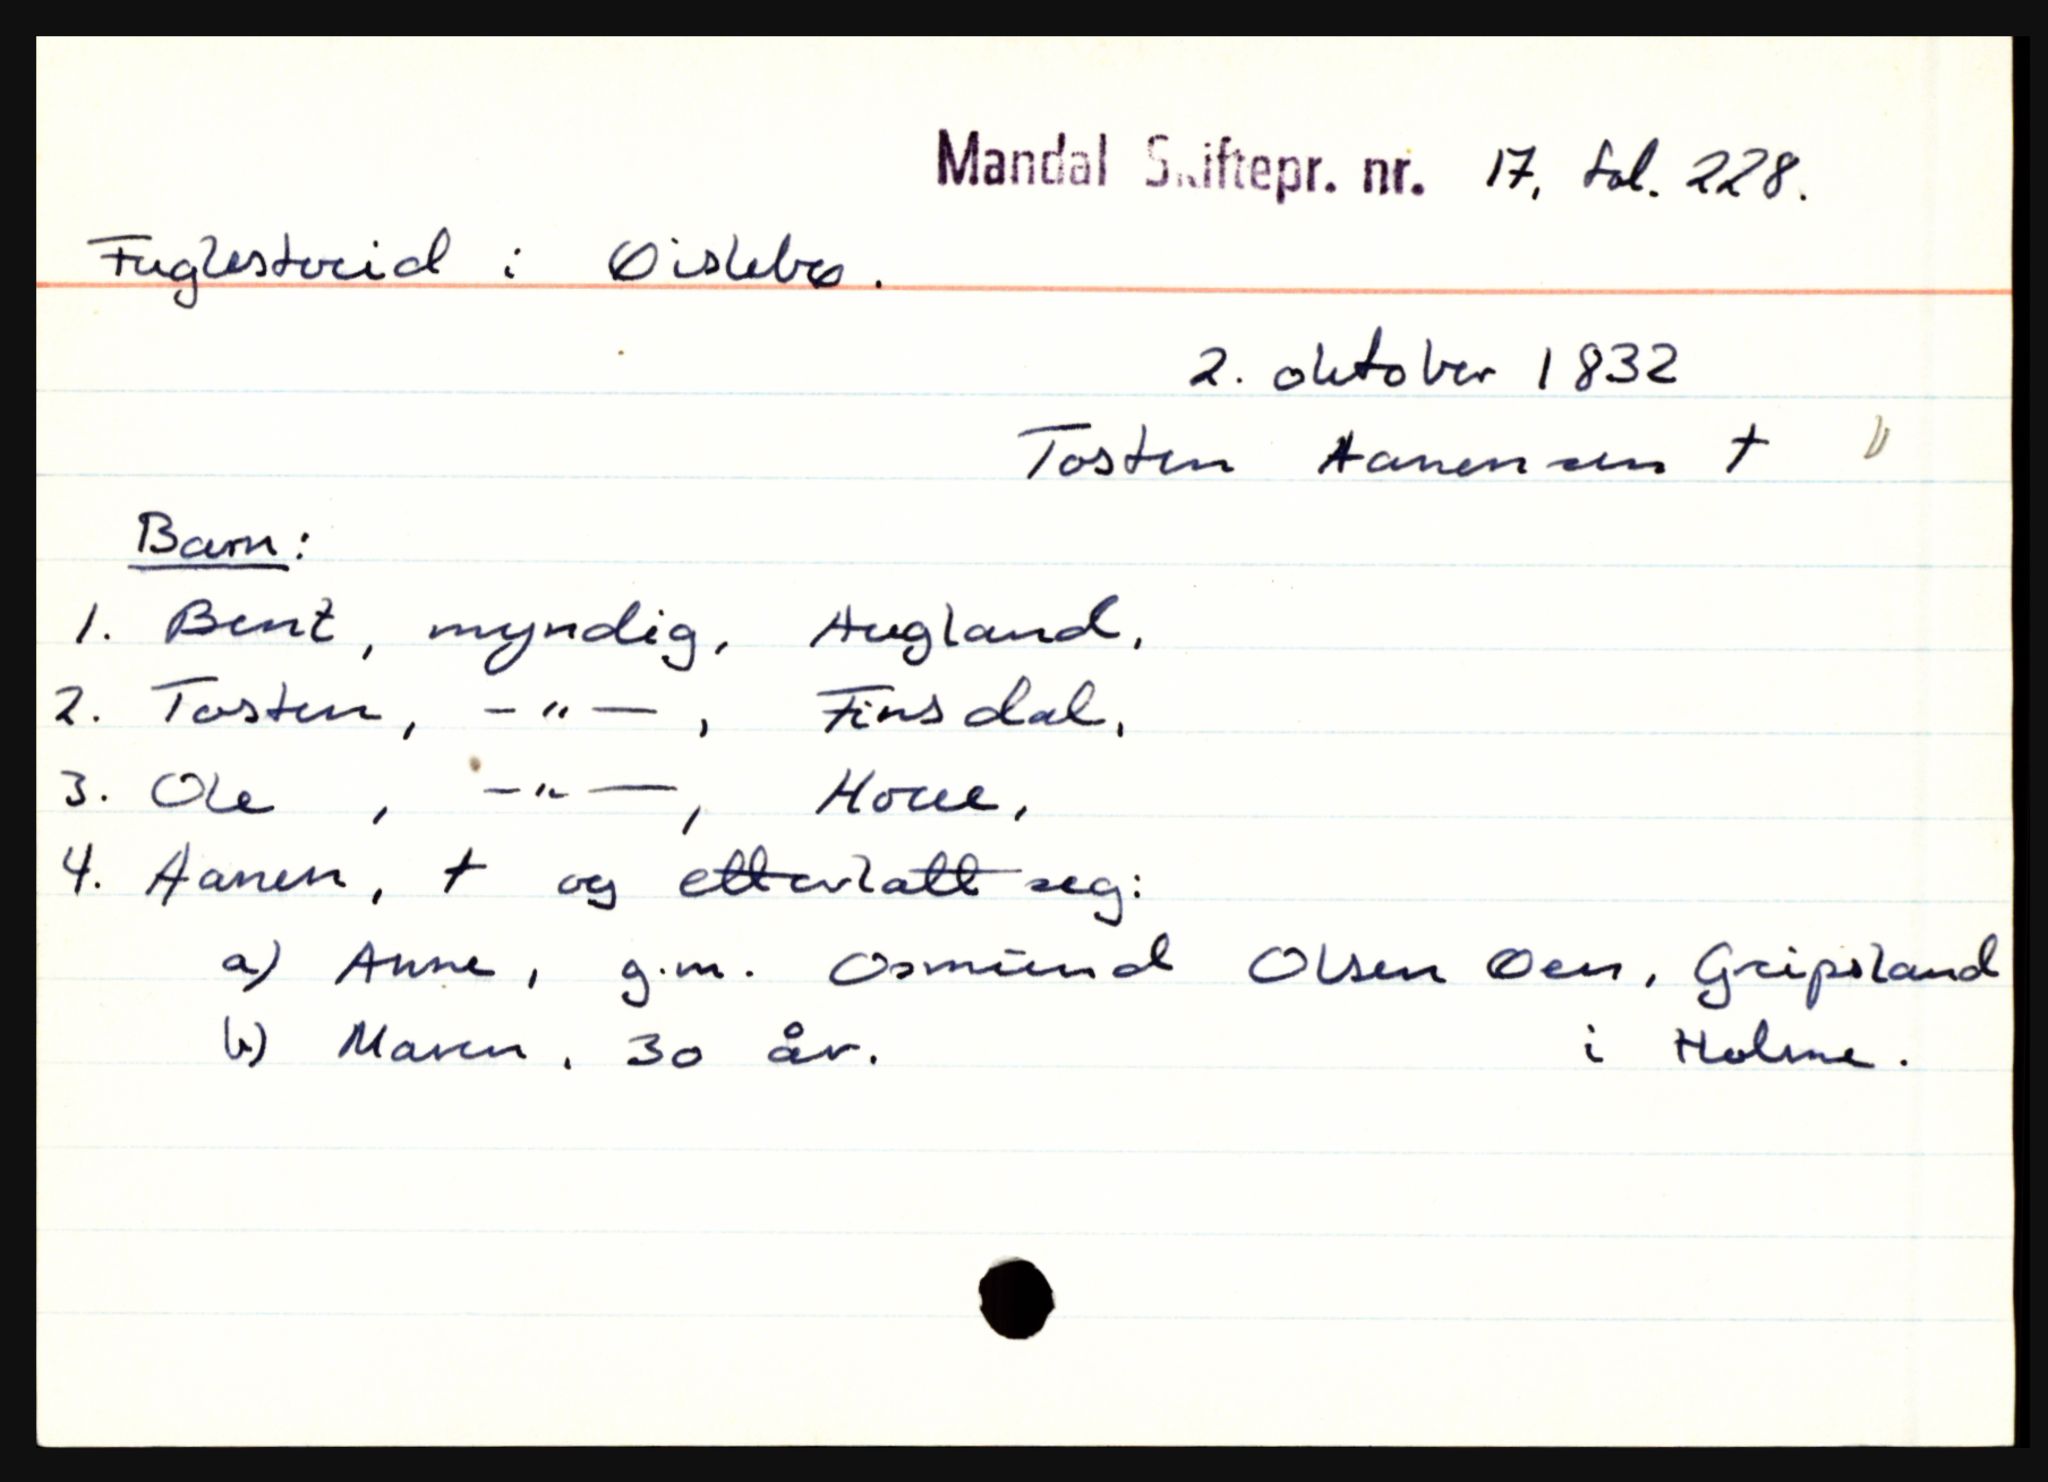 Mandal Skiftepr. nr. 17, fol. 228.
Fuglestveid i Øislebø.
2. oktober 1832
Tosten Aanensen †
Barn:
1. Bent, myndig, Augland,
2. Tosten, -"-, Finsdal,
3. Ole , -"-, Houe,
4. Aanen, † og etterlatt seg:
a) Anne, g.m. Osmund Olsen Øen, Gripsland
b) Maren, 30 år. i Holme.